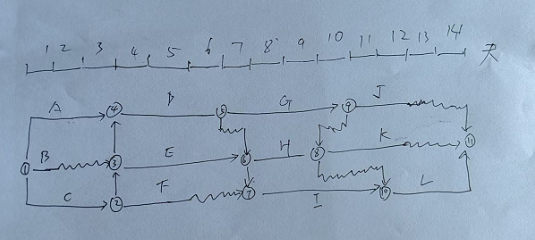 1 2 3 4 5 6 7 8 9 10 11 12 13 14 天
A D G J
④ ⑤ ⑨
B E H K
① ③ ⑥ ⑧ ⑪
C F I L
② ⑦ ⑩